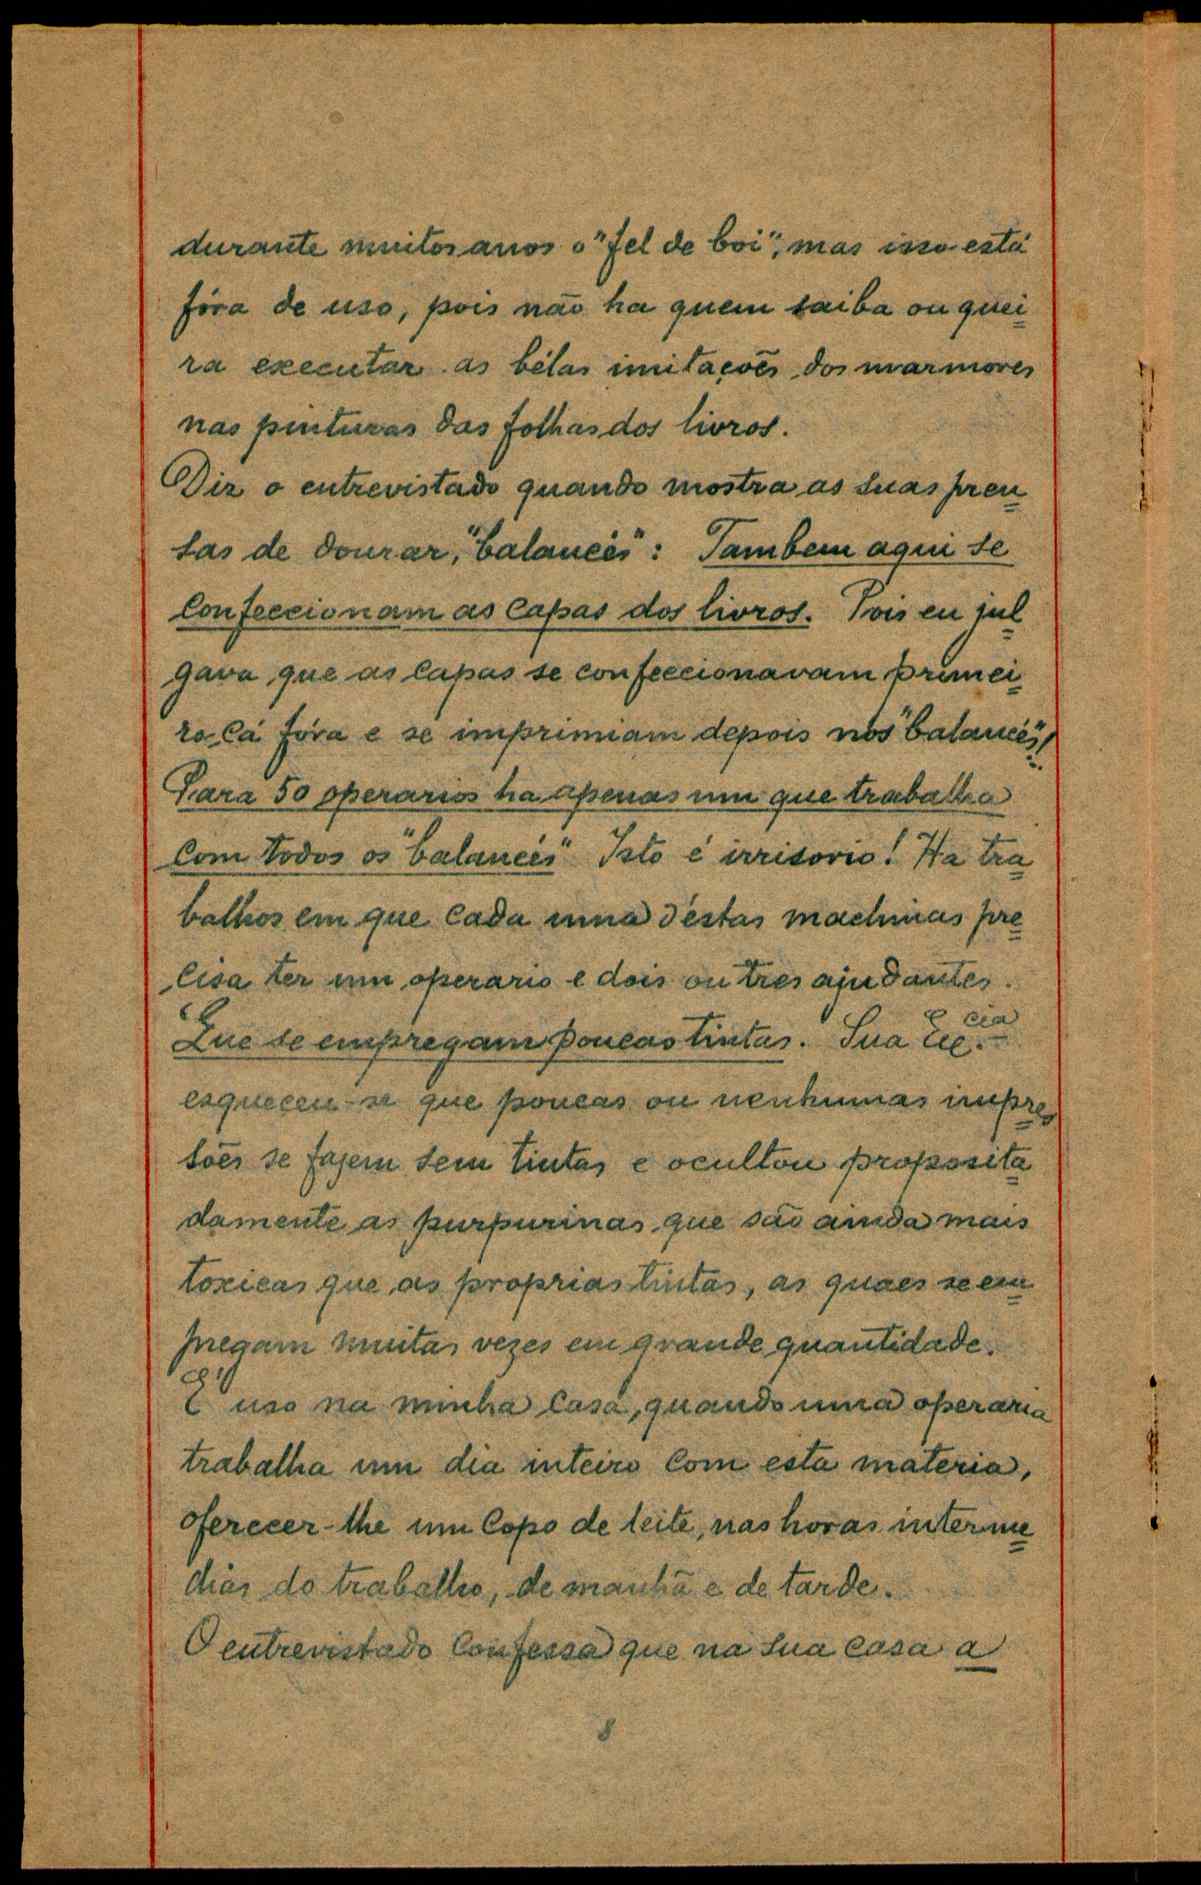 durante muitos anos o "fel de boi", mas isso está
fóra de uso, pois não ha quem saiba ou quei=
ra executar as bélas imitações dos marmores
nas pinturas das folhas dos livros.
Diz o entrevistado quando mostra as suas pren=
sas de dourar, "balancés": Tambem aqui se
confeccionam as capas dos livros. Pois eu jul=
gava que as capas se confeccionavam primei=
ro cá fóra e se imprimiam depois nos "balancés"!
Para 50 operarios ha apenas um que trabalha
com todos os "balancés" Isto é irrisorio! Ha tra=
balhos em que cada uma déstas machinas pre=
cisa ter um operario e dois ou tres ajudantes.
Que se empregam poucas tintas. Sua Exᶜⁱᵃ.
esqueceu-se que poucas ou nenhumas impres=
sões se fazem sem tintas e ocultou proposita=
damente as purpurinas que são ainda mais
toxicas que as proprias tintas, as quaes se em=
pregam muitas vezes em grande quantidade.
E' uso na minha casa, quando uma operaria
trabalha um dia inteiro com esta materia,
oferecer-lhe um copo de leite, nas horas interme=
dias do trabalho, de manhã e de tarde.
O entrevistado confessa que na sua casa a
8